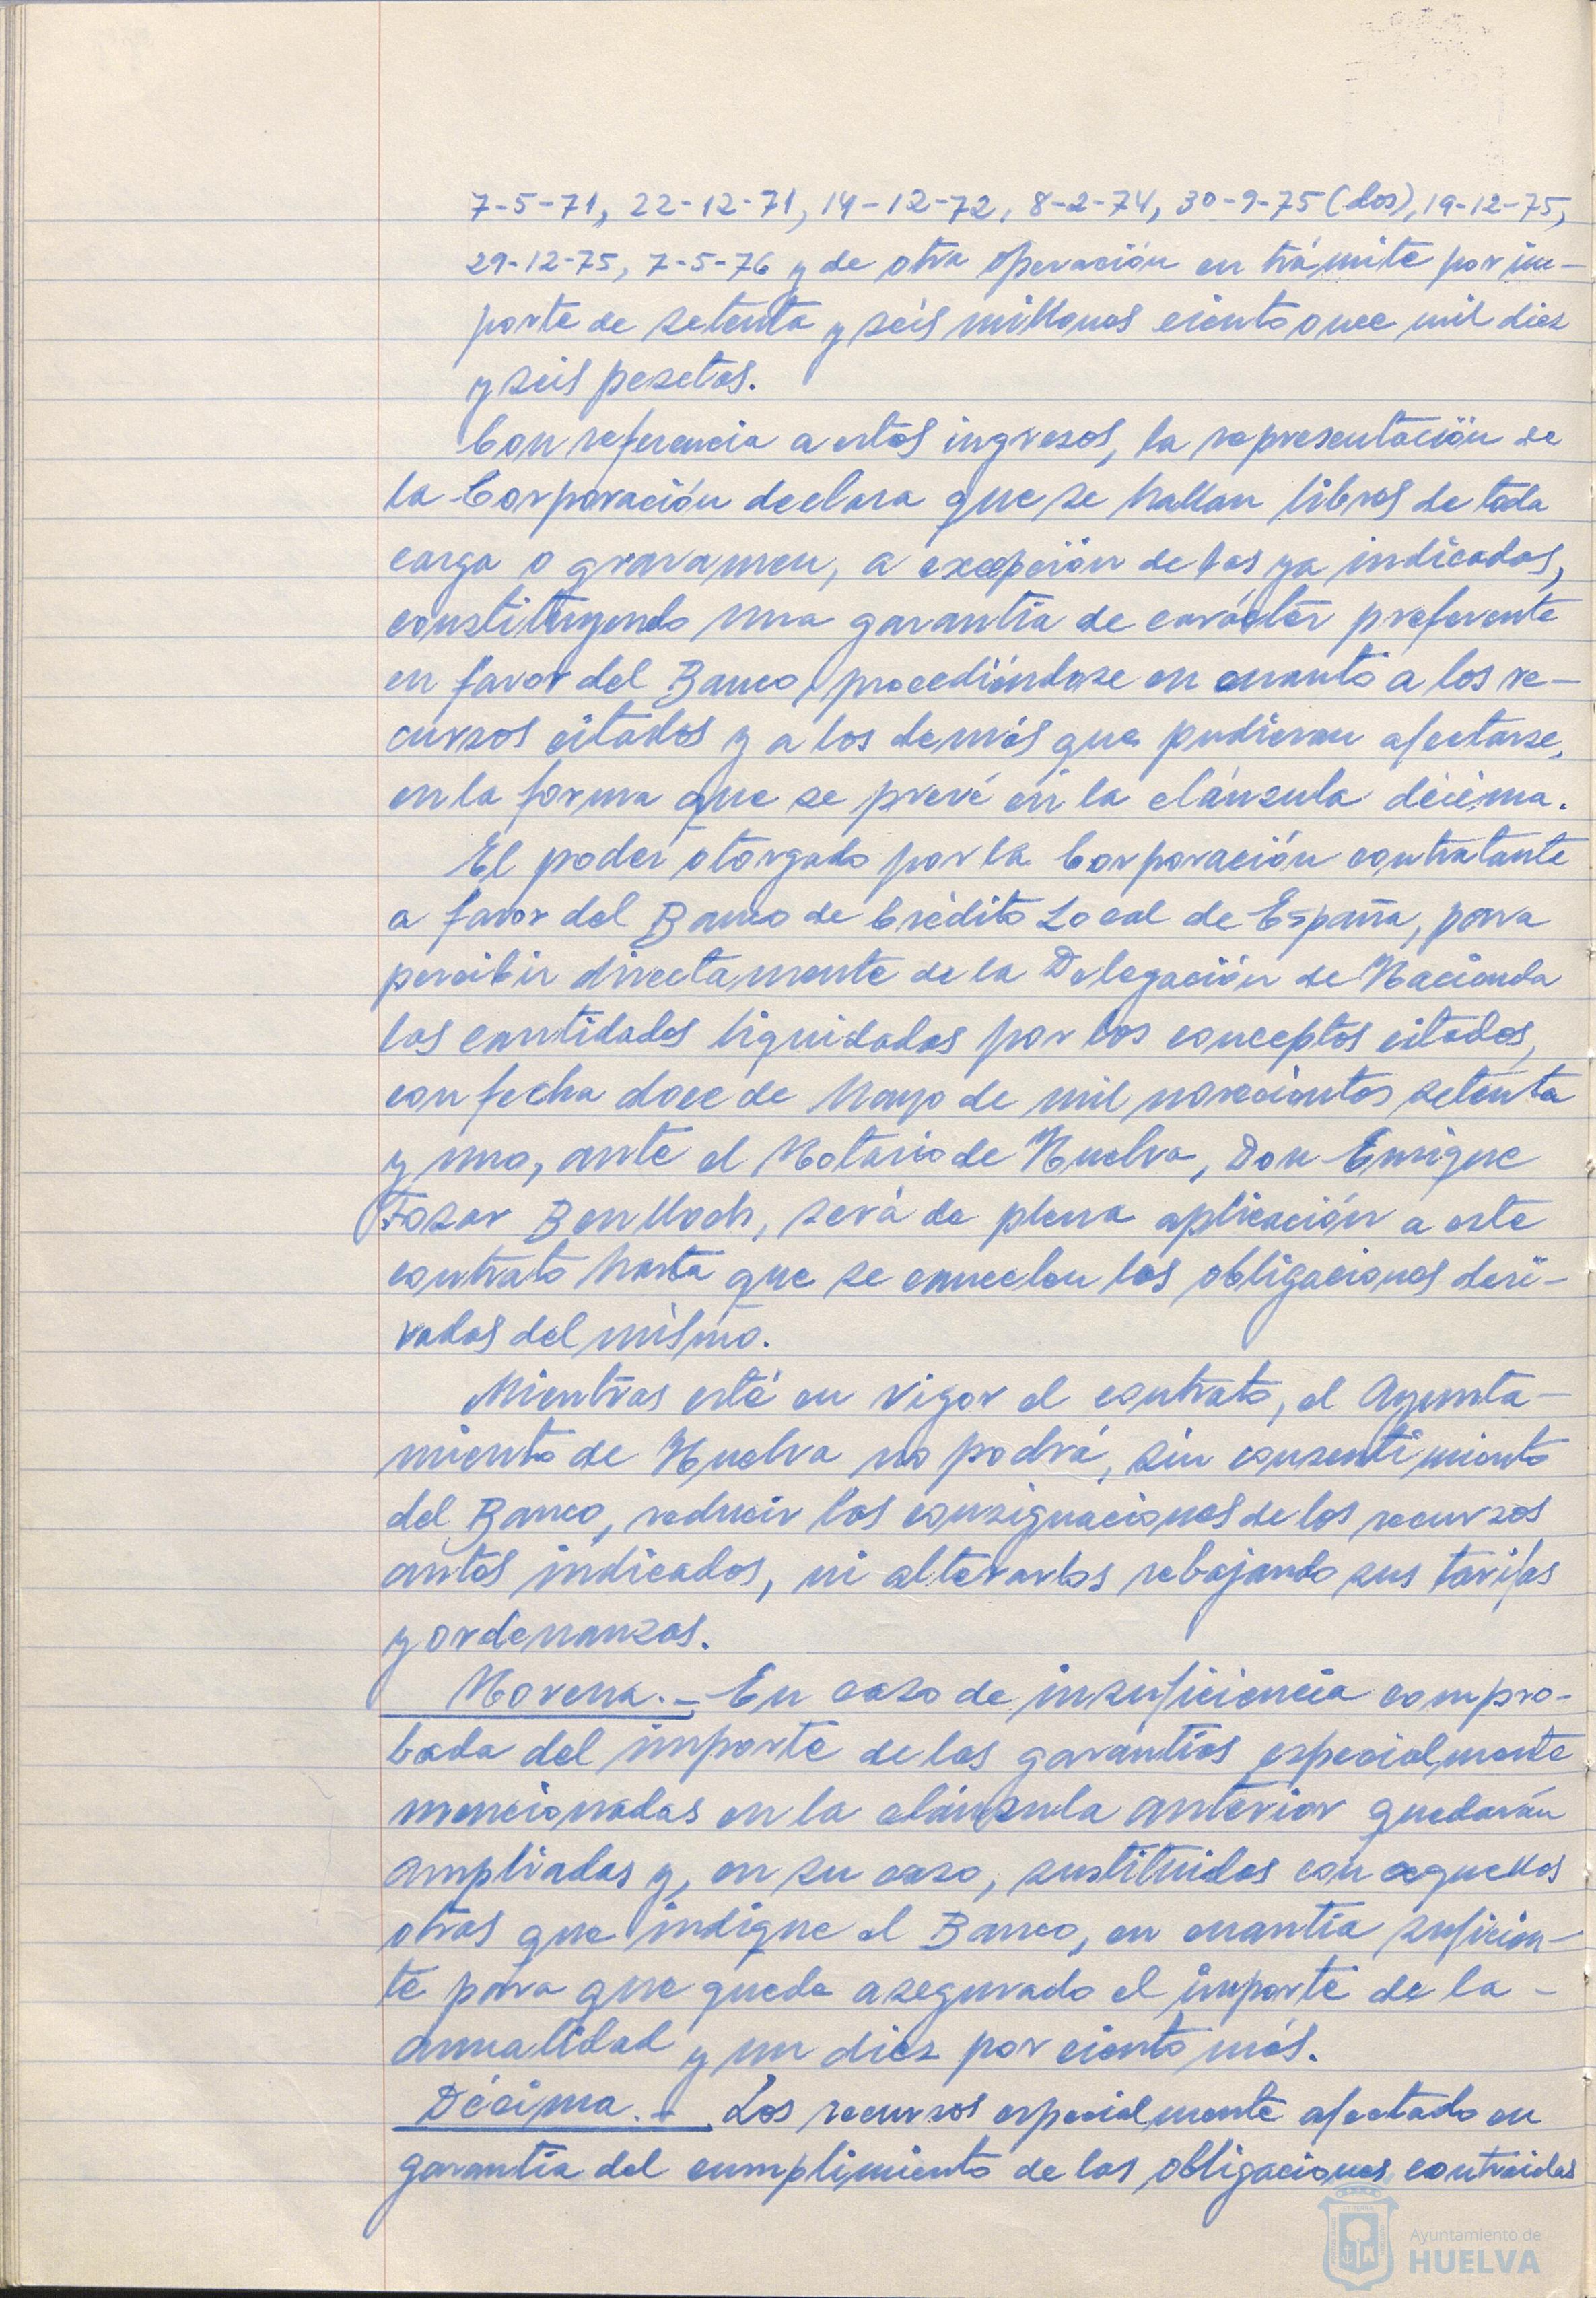 7-5-71, 22-12-71, 14-12-72, 8-2-74, 30-9-75 (dos), 19-12-75,
29-12-75, 7-5-76 y de otra operación en trámite por im-
porte de setenta y séis millones ciento once mil diez
y seis pesetas.
Con referencia a estos ingresos, la representación de
la Corporación declara que se hallan libres de toda
carga o gravamen, a excepción de las ya indicadas,
constituyendo una garantía de carácter preferente
en favor del Banco, procediéndose en cuanto a los re-
cursos citados y a los demás que pudieran afectarse,
en la forma que se prevé en la cláusula décima.
El poder otorgado por la Corporación contratante
a favor del Banco de Crédito Local de España, para
percibir directamente de la Delegación de Hacienda
las cantidades liquidadas por los conceptos citados,
con fecha doce de Mayo de mil novecientos setenta
y uno, ante el Notario de Huelva, Don Enrique
Fosar Benlloch, será de plena aplicación a este
contrato hasta que se cancelen las obligaciones deri-
vadas del mismo.
Mientras esté en vigor el contrato, el Ayunta-
miento de Huelva no podrá, sin consentimiento
del Banco, reducir las consignaciones de los recursos
antes indicados, ni alterarlos rebajando sus tarifas
y ordenanzas.
Novena.- En caso de insuficiencia compro-
bada del importe de las garantías especialmente
mencionadas en la cláusula anterior quedarán
ampliadas y, en su caso, sustituidas con aquellas
otras que indique el Banco, en cuantía suficien-
te para que quede asegurado el importe de la -
anualidad y un diez por ciento más.
Décima.- Los recursos especialmente afectado en
garantía del cumplimiento de las obligaciones contraidas
Ayuntamiento de
HUELVA